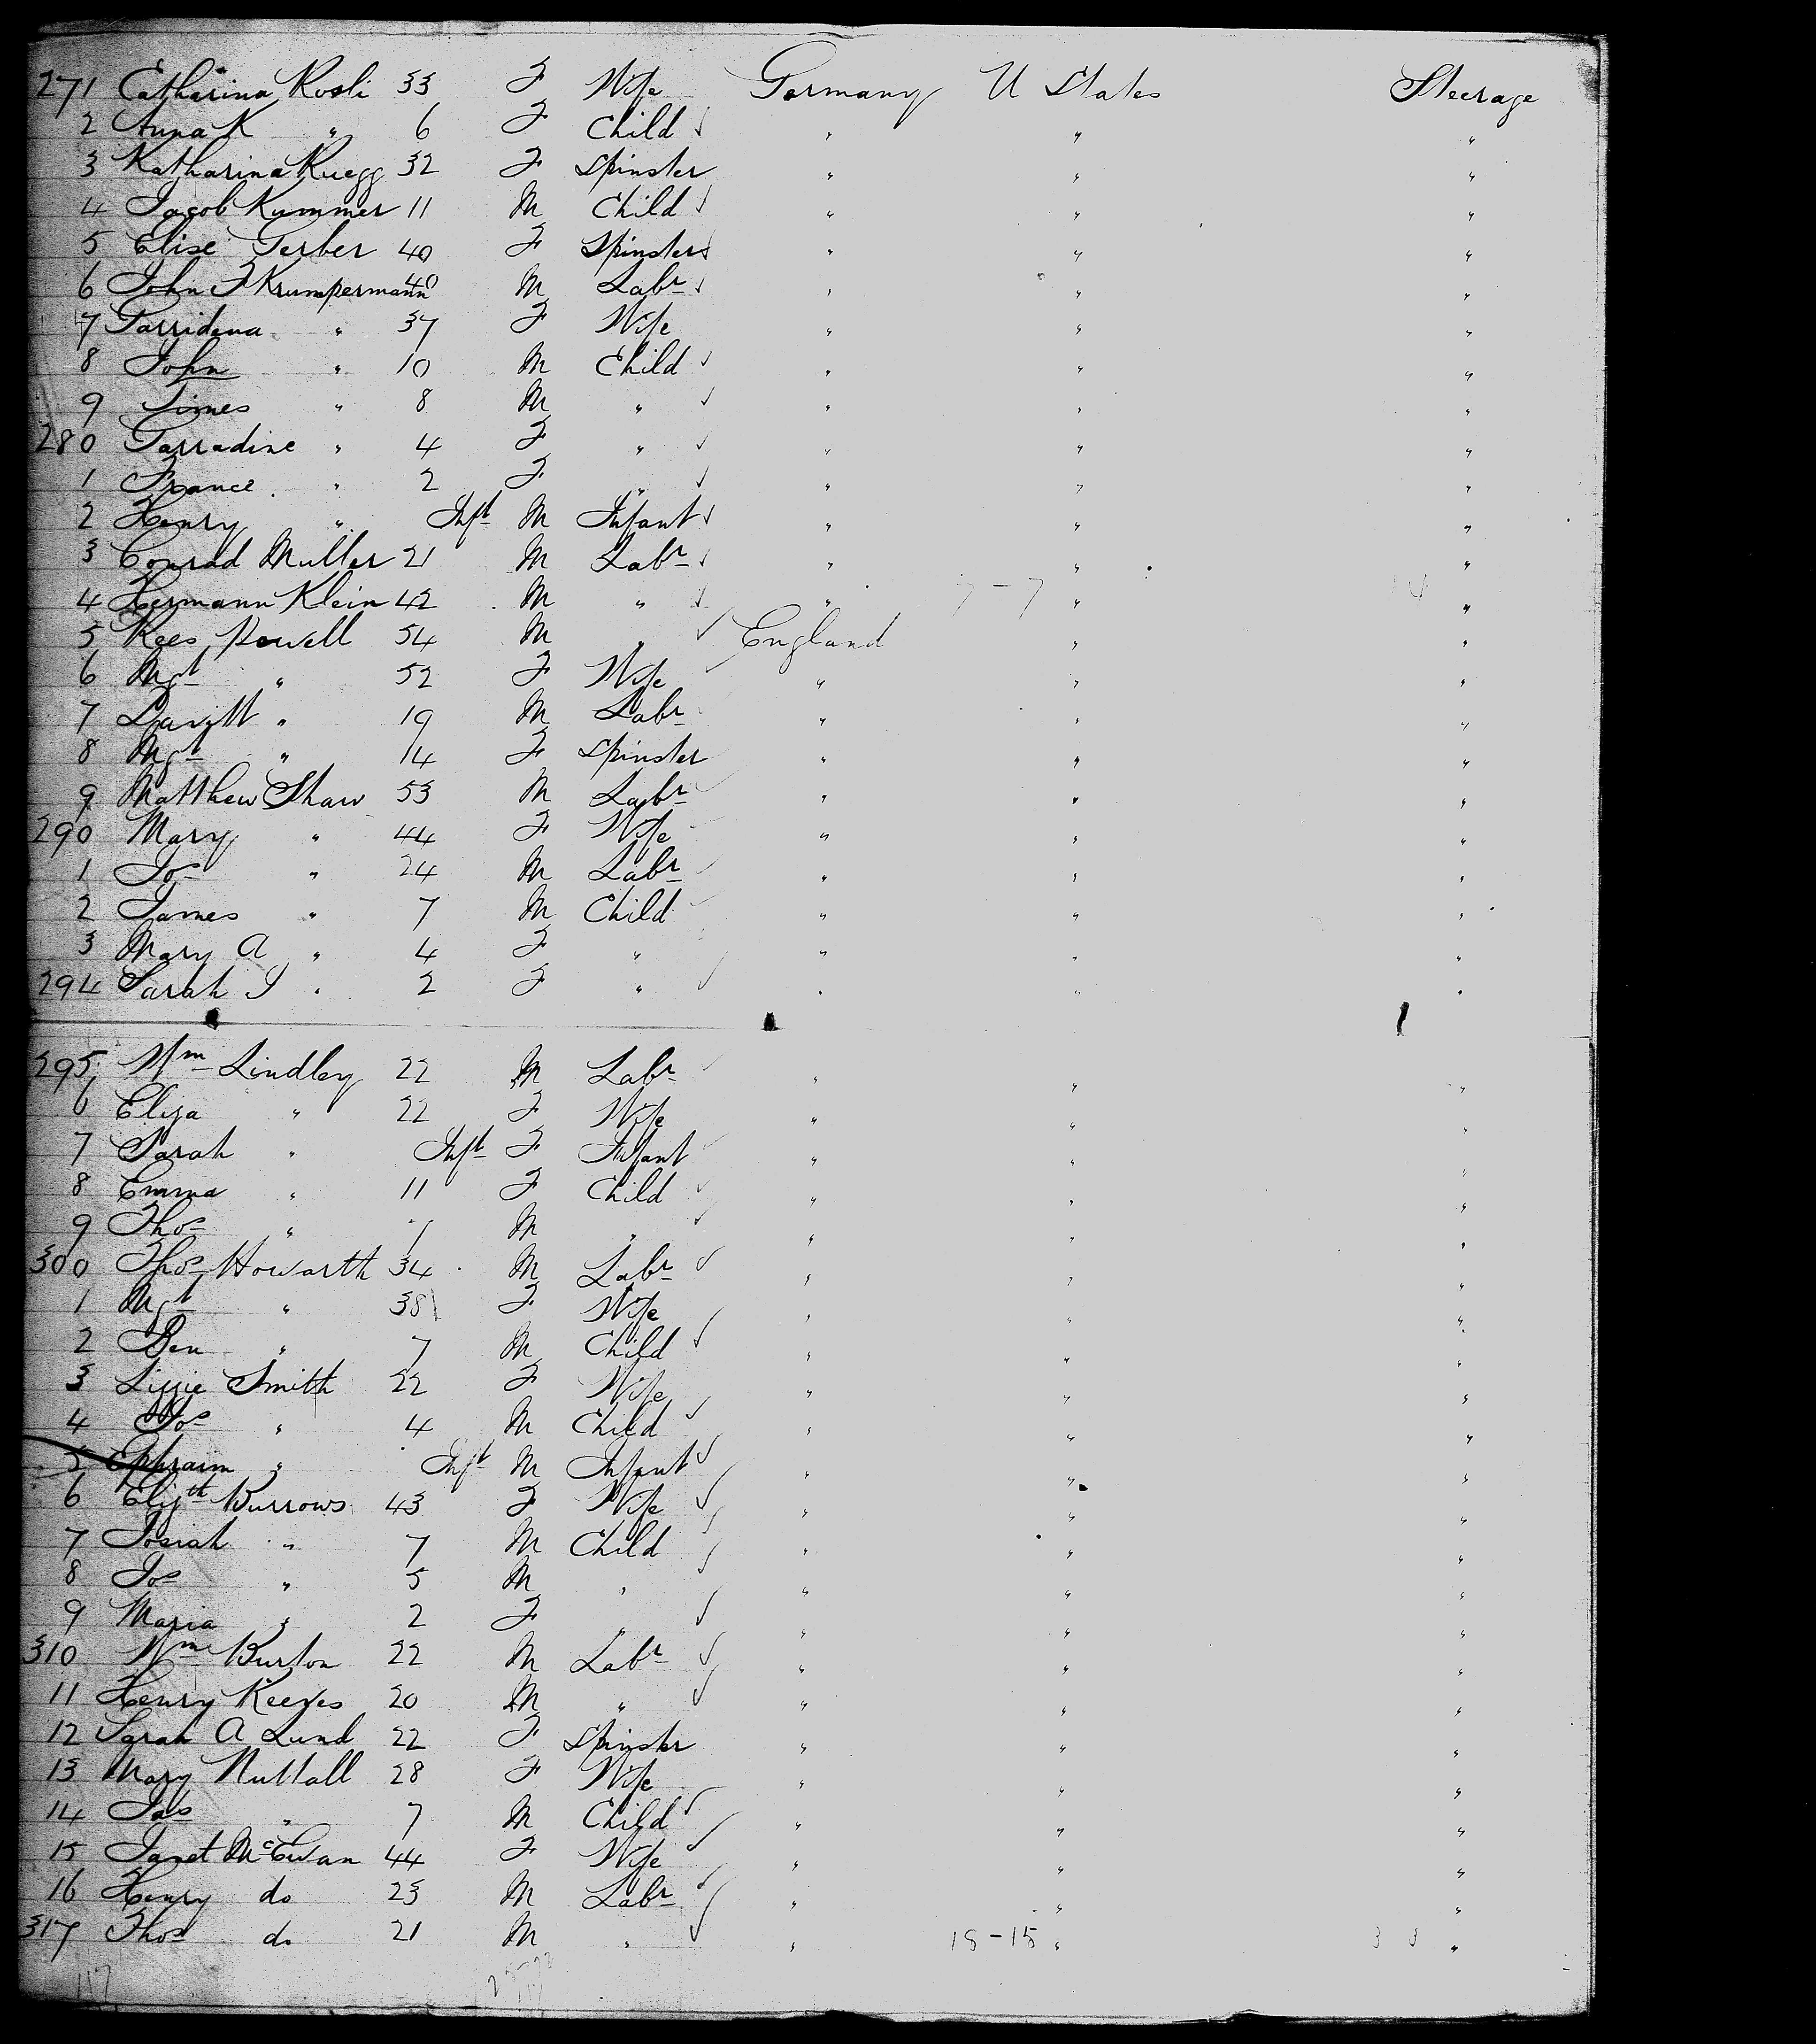 271 Catharina Rosli 33 F Wife Germany U States Steerage
2 Anna K " 6 F Child " " "
3 Katharina Ruegg 32 F Spinster " " "
4 Jacob Kummer 11 M Child " " "
5 Elise Gerber 40 F Spinster " " "
6 John F Krumpermann 40 M Labr " " "
7 Garridena " 37 F Wife " " "
8 John " 10 M Child " " "
9 Simes " 8 M " " " "
280 Garradine " 4 F " " " "
1 France " 2 F " " " "
2 Henry " Inft M Infant " " "
3 Conrad Muller 21 M Labr " " "
4 Hermann Klein 42 M " " 7-7 " 14 "
5 Rees Powell 54 M " England " "
6 Mgt " 52 F Wife " " "
7 " 19 M Labr " " "
8 Mgt " 14 F Spinster " " "
9 Matthew Shaw 53 M Labr " " "
290 Mary " 44 F Wife " " "
1 Jos " 24 M Labr " " "
2 James " 7 M Child " " "
3 Mary A " 4 F " " " "
294 Sarah J " 2 F " " " "
295 Wm Lindley 22 M Labr " " "
6 Eliza " 22 F Wife " " "
7 Sarah " Inft F Infant " " "
8 Emma " 11 F Child " " "
9 Thos " 7 M " " " "
300 Thos Howarth 34 M Labr " " "
1 Mgt " 38 F Wife " " "
2 Ben " 7 M Child " " "
3 Lizzie Smith 22 F Wife " " "
4 Jos " 4 M Child " " "
5 Ephraim " Inft M Infant " " "
6 Elizth Burrows 43 F Wife " " "
7 Josiah " 7 M Child " " "
8 Jos " 5 M " " " "
9 Maria " 2 F " " " "
310 Wm Burton 22 M Labr " " "
11 Henry Reeves 20 M " " " "
12 Sarah A Lund 22 F Spinster " " "
13 Mary Nuttall 28 F Wife " " "
14 Jas " 7 M Child " " "
15 Janet McEwan 44 F Wife " " "
16 Henry do 23 M Labr " " "
317 Thos do 21 M " " 18-15 " 33 "
117